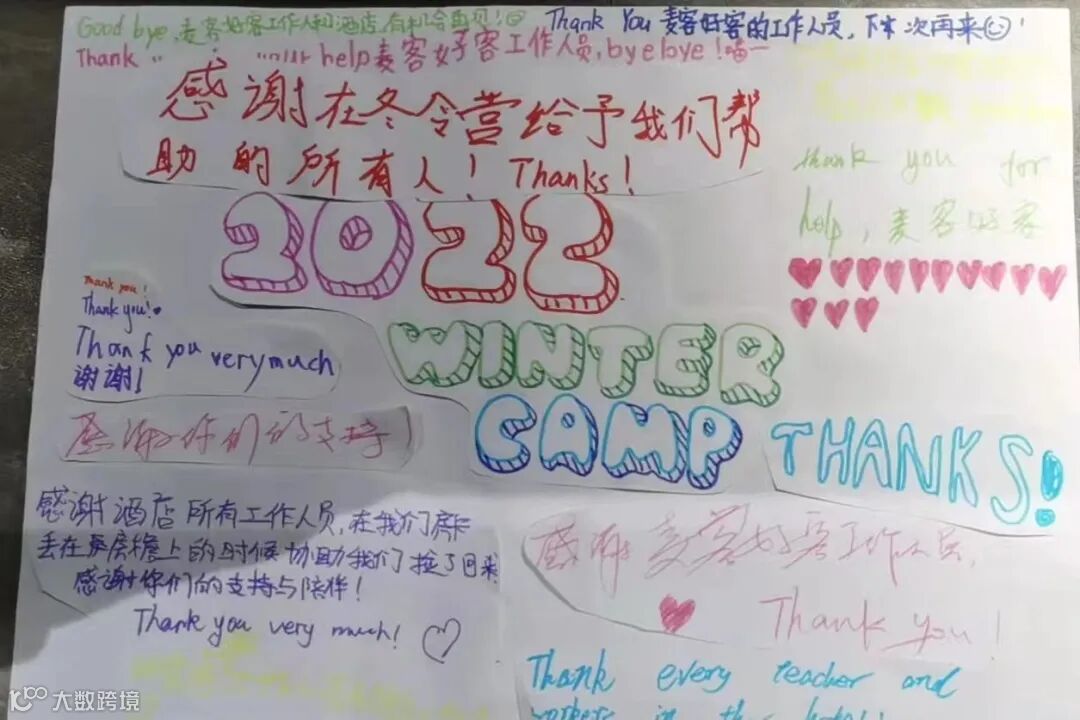 Good bye,麦客好客工作人和酒店,有机会再见!
Thank You 麦客好客的工作人员,下次再来
Thank your help麦客好客工作人员,byebye!喵一
感谢在冬令营给予我们帮
助的所有人! Thanks!
thank you for
help,麦客好客
2022
WINTER
CAMP
THANKS!
Thank you!
Thank you!
Thank you very much
谢谢!
感谢你们的支持!
感谢酒店所有工作人员,在我们房卡
丢在房檐上的时候协助我们捡了回来
感谢你们的支持与陪伴!
Thank you very much!
感谢麦客好客工作人员,
Thank you!
Thank every teacher and
workers in the hotel
大数跨境